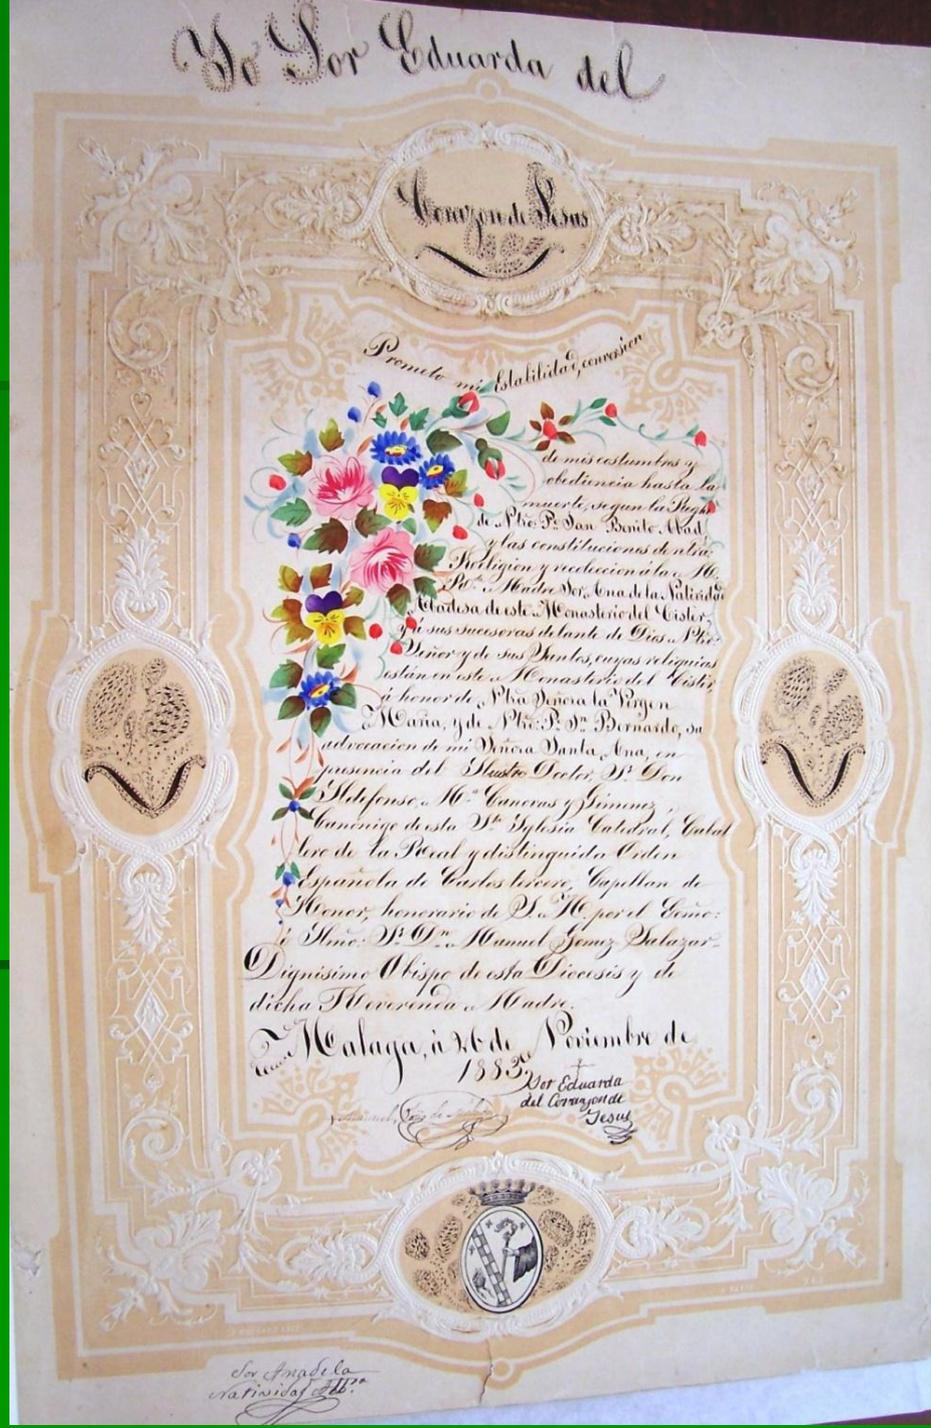 Yo Sor Eduarda del
Corazon de Jesus
Prometo mi Estabilidad, conversion
de mis costumbres y
obediencia hasta la
muerte, segun la Regla
de Ntro. P. San Benito Abad
y las constituciones de ntra.
Religion y recoleccion á la M.
Rda. Madre Sor Ana de la Natividad
Abadesa de este Monasterio del Cister,
y á sus sucesoras delante de Dios Ntro.
Señor y de sus Santos, cuyas reliquias
están en este Monasterio del Cister,
á honor de Ntra Señora la Virgen
Maria, y de Ntro. P. Sn. Bernardo, su
advocacion de mi Señora Santa Ana, en
presencia del Ilustre Doctor, Sr. Don
Ildefonso, Ma. Canovas y Gimenez,
Canónigo de esta Sta. Yglesia Catedral, Cabal
lero de la Real y distinguida Orden
Española de Carlos tercero, Capellan de
Honor, honorario de S. M. por el Exmo:
é Ilmo: Sr. Dn. Manuel Gomez Salazar
Dignisimo Obispo de esta Diocesis y de
dicha Reverenda Madre.
Malaga, á 26 de Noviembre de
1883.
Sor Eduarda
del Corazon de
Jesus
Sor Ana de la
Natividad Aba.